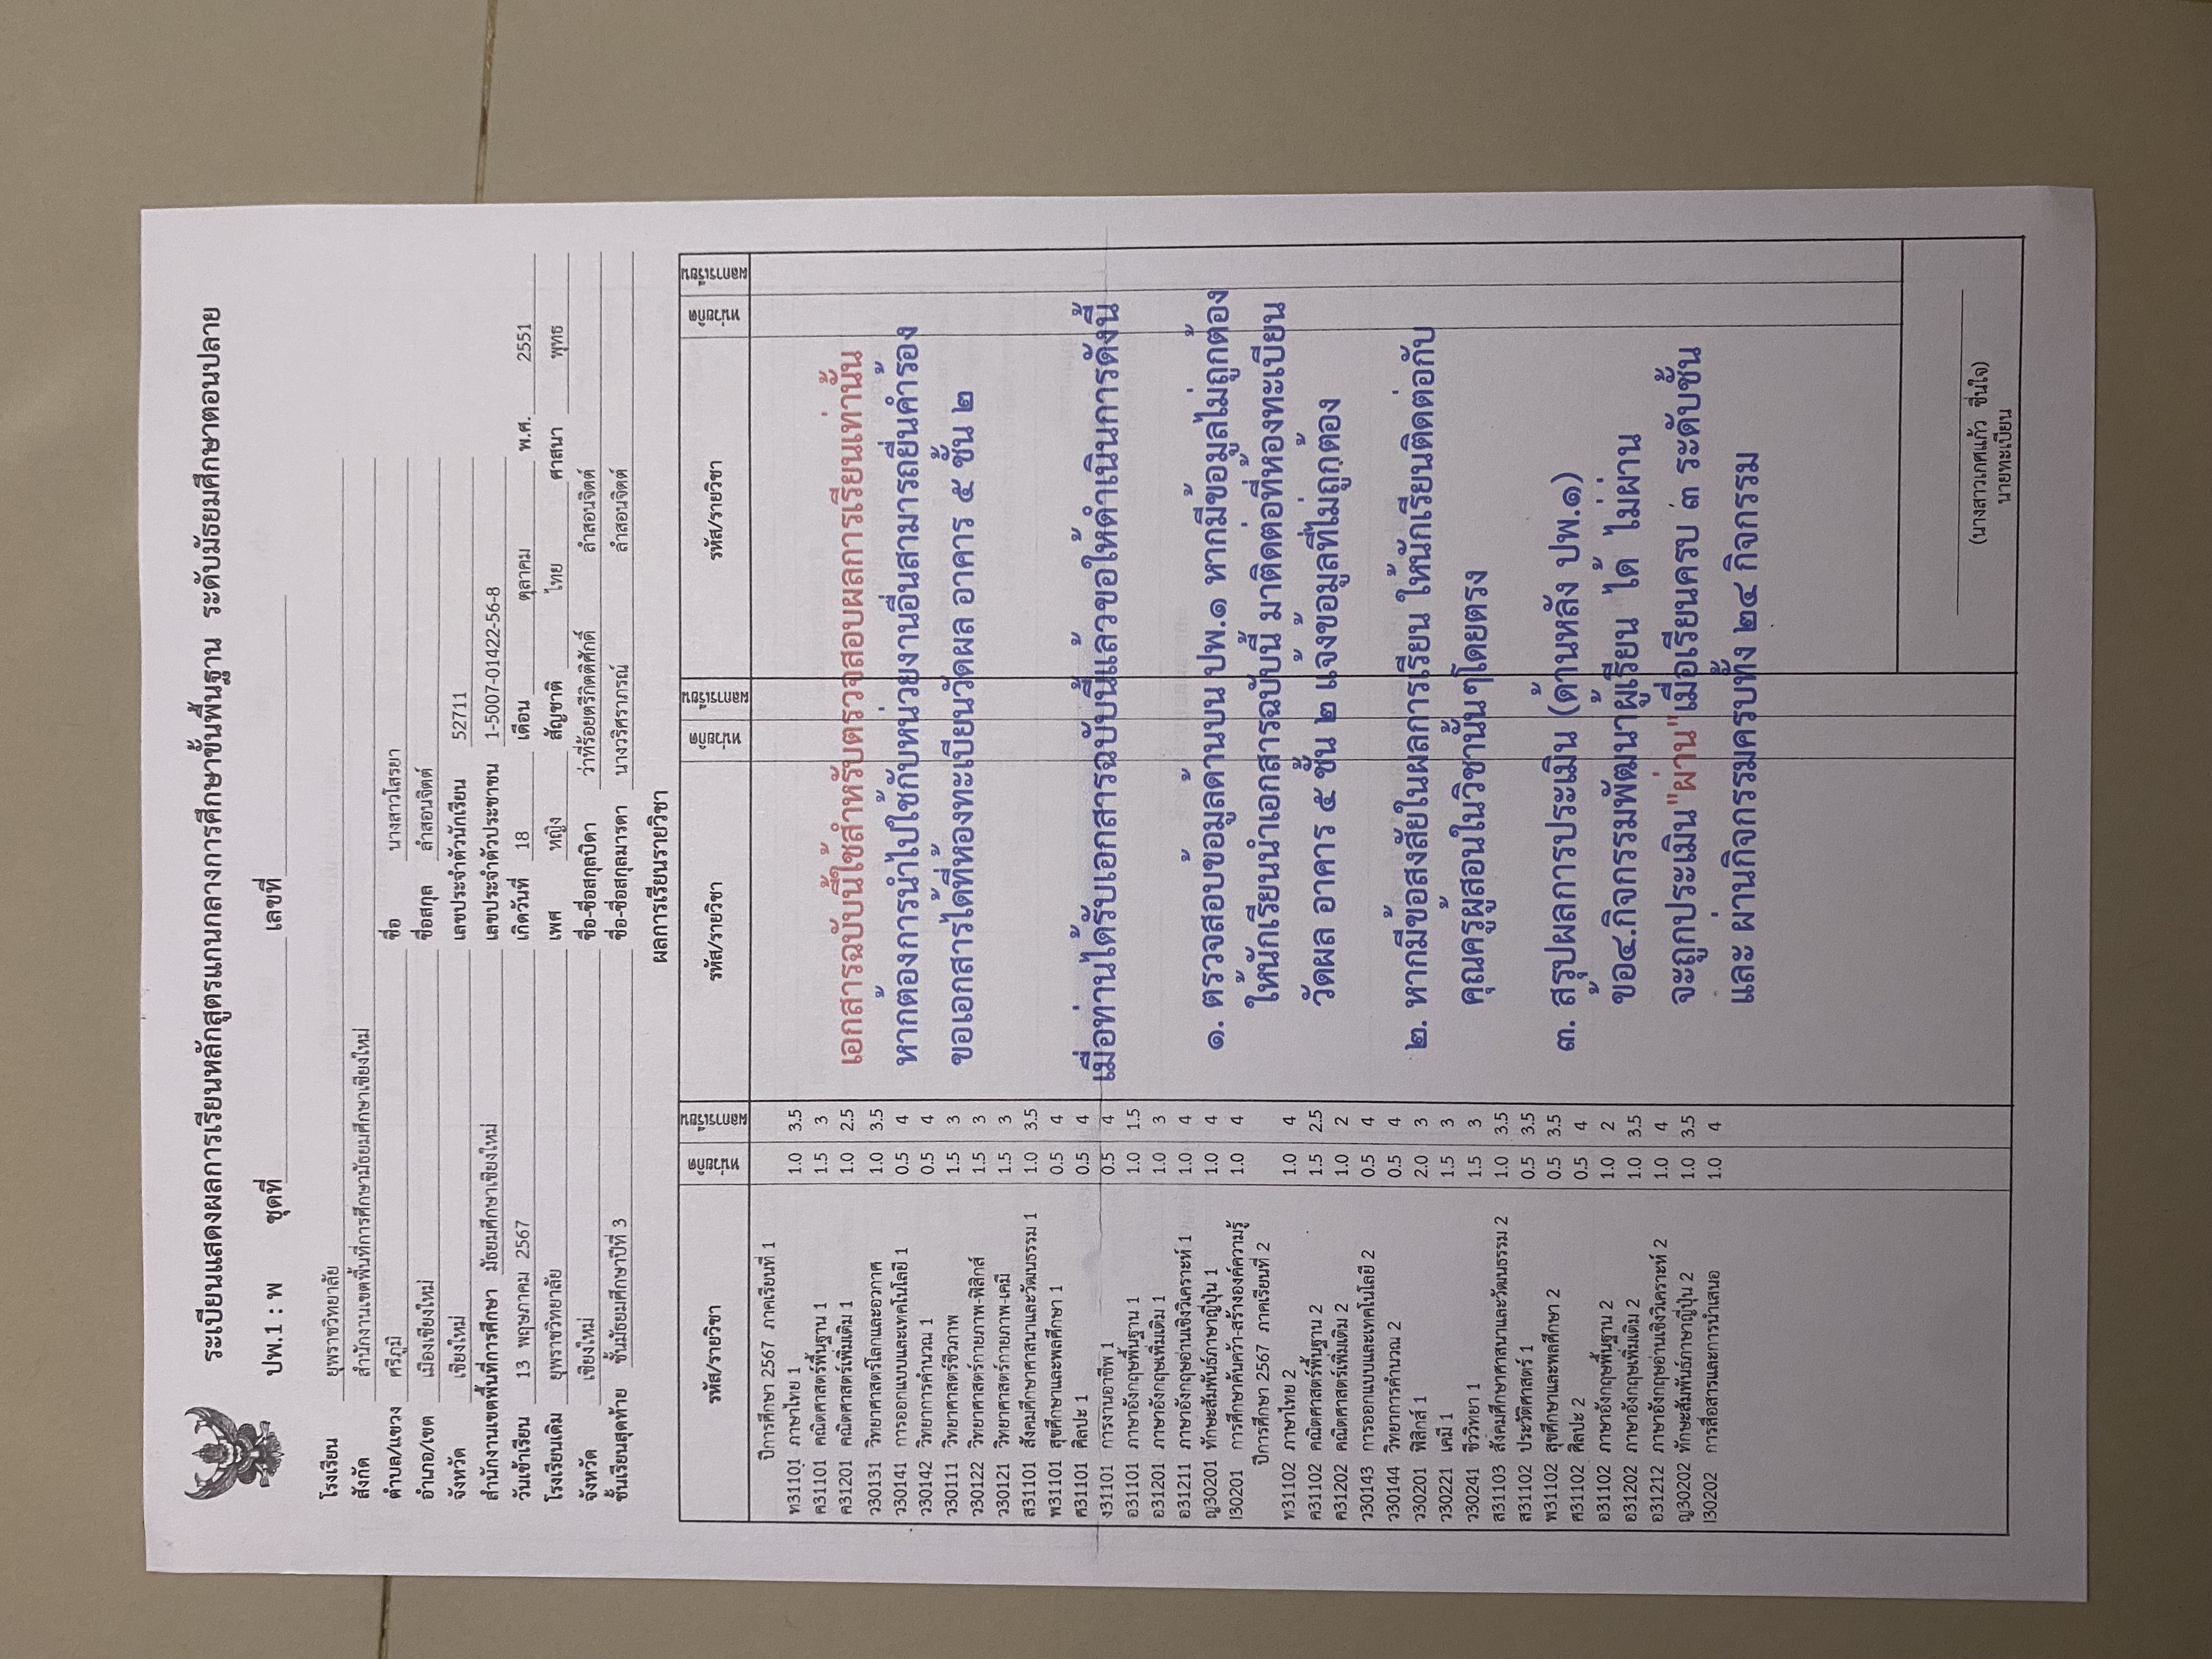 ระเบียนแสดงผลการเรียนหลักสูตรแกนกลางการศึกษาขั้นพื้นฐาน ระดับมัธยมศึกษาตอนปลาย
ปพ.1 : พ ชุดที่ เลขที่
โรงเรียน ยุพราชวิทยาลัย
สังกัด สำนักงานเขตพื้นที่การศึกษามัธยมศึกษาเชียงใหม่
ตำบล/แขวง ศรีภูมิ
อำเภอ/เขต เมืองเชียงใหม่
จังหวัด เชียงใหม่
สำนักงานเขตพื้นที่การศึกษา มัธยมศึกษาเชียงใหม่
วันเข้าเรียน 13 พฤษภาคม 2567
โรงเรียนเดิม ยุพราชวิทยาลัย
จังหวัด เชียงใหม่
ชั้นเรียนสุดท้าย ชั้นมัธยมศึกษาปีที่ 3
ชื่อ นางสาวโสรยา
ชื่อสกุล ลำสอนจิตต์
เลขประจำตัวนักเรียน 52711
เลขประจำตัวประชาชน 1-5007-01422-56-8
เกิดวันที่ 18 เดือน ตุลาคม พ.ศ. 2551
เพศ หญิง สัญชาติ ไทย ศาสนา พุทธ
ชื่อ-ชื่อสกุลบิดา ว่าที่ร้อยตรีกิตติศักดิ์ ลำสอนจิตต์
ชื่อ-ชื่อสกุลมารดา นางวริศราภรณ์ ลำสอนจิตต์
ผลการเรียนรายวิชา
รหัส/รายวิชา หน่วยกิต ผลการเรียน รหัส/รายวิชา หน่วยกิต ผลการเรียน รหัส/รายวิชา หน่วยกิต ผลการเรียน
ปีการศึกษา 2567 ภาคเรียนที่ 1
ท31101 ภาษาไทย 1 1.0 3.5
ค31101 คณิตศาสตร์พื้นฐาน 1 1.5 3
ค31201 คณิตศาสตร์เพิ่มเติม 1 1.0 2.5
ว30131 วิทยาศาสตร์โลกและอวกาศ 1.0 3.5
ว30141 การออกแบบและเทคโนโลยี 1 0.5 4
ว30142 วิทยาการคำนวณ 1 0.5 4
ว30111 วิทยาศาสตร์ชีวภาพ 1.5 3
ว30122 วิทยาศาสตร์กายภาพ-ฟิสิกส์ 1.5 3
ว30121 วิทยาศาสตร์กายภาพ-เคมี 1.5 3
ส31101 สังคมศึกษาศาสนาและวัฒนธรรม 1 1.0 3.5
พ31101 สุขศึกษาและพลศึกษา 1 0.5 4
ศ31101 ศิลปะ 1 0.5 4
ง31101 การงานอาชีพ 1 0.5 4
อ31101 ภาษาอังกฤษพื้นฐาน 1 1.0 1.5
อ31201 ภาษาอังกฤษเพิ่มเติม 1 1.0 3
อ31211 ภาษาอังกฤษอ่านเชิงวิเคราะห์ 1 1.0 4
ญ30201 ทักษะสัมพันธ์ภาษาญี่ปุ่น 1 1.0 4
I30201 การศึกษาค้นคว้า-สร้างองค์ความรู้ 1.0 4
ปีการศึกษา 2567 ภาคเรียนที่ 2
ท31102 ภาษาไทย 2 1.0 4
ค31102 คณิตศาสตร์พื้นฐาน 2 1.5 2.5
ค31202 คณิตศาสตร์เพิ่มเติม 2 1.0 2
ว30143 การออกแบบและเทคโนโลยี 2 0.5 4
ว30144 วิทยาการคำนวณ 2 0.5 4
ว30201 ฟิสิกส์ 1 2.0 3
ว30221 เคมี 1 1.5 3
ว30241 ชีววิทยา 1 1.5 3
ส31103 สังคมศึกษาศาสนาและวัฒนธรรม 2 1.0 3.5
ส31102 ประวัติศาสตร์ 1 0.5 3.5
พ31102 สุขศึกษาและพลศึกษา 2 0.5 3.5
ศ31102 ศิลปะ 2 0.5 4
อ31102 ภาษาอังกฤษพื้นฐาน 2 1.0 2
อ31202 ภาษาอังกฤษเพิ่มเติม 2 1.0 3.5
อ31212 ภาษาอังกฤษอ่านเชิงวิเคราะห์ 2 1.0 4
ญ30202 ทักษะสัมพันธ์ภาษาญี่ปุ่น 2 1.0 3.5
I30202 การสื่อสารและการนำเสนอ 1.0 4
เอกสารฉบับนี้ใช้สำหรับตรวจสอบผลการเรียนเท่านั้น
หากต้องการนำไปใช้กับหน่วยงานอื่นสามารถยื่นคำร้อง
ขอเอกสารได้ที่ห้องทะเบียนวัดผล อาคาร ๕ ชั้น ๒
เมื่อท่านได้รับเอกสารฉบับนี้แล้วขอให้ดำเนินการดังนี้
๑. ตรวจสอบข้อมูลด้านบน ปพ.๑ หากมีข้อมูลไม่ถูกต้อง
ให้นักเรียนนำเอกสารฉบับนี้ มาติดต่อที่ห้องทะเบียน
วัดผล อาคาร ๕ ชั้น ๒ แจ้งข้อมูลที่ไม่ถูกต้อง
๒. หากมีข้อสงสัยในผลการเรียน ให้นักเรียนติดต่อกับ
คุณครูผู้สอนในวิชานั้นๆโดยตรง
๓. สรุปผลการประเมิน (ด้านหลัง ปพ.๑)
ข้อ๔.กิจกรรมพัฒนาผู้เรียน ได้ ไม่ผ่าน
จะถูกประเมิน"ผ่าน"เมื่อเรียนครบ ๓ ระดับชั้น
และ ผ่านกิจกรรมครบทั้ง ๒๔ กิจกรรม
(นางสาวเกศแก้ว ชื่นใจ)
นายทะเบียน